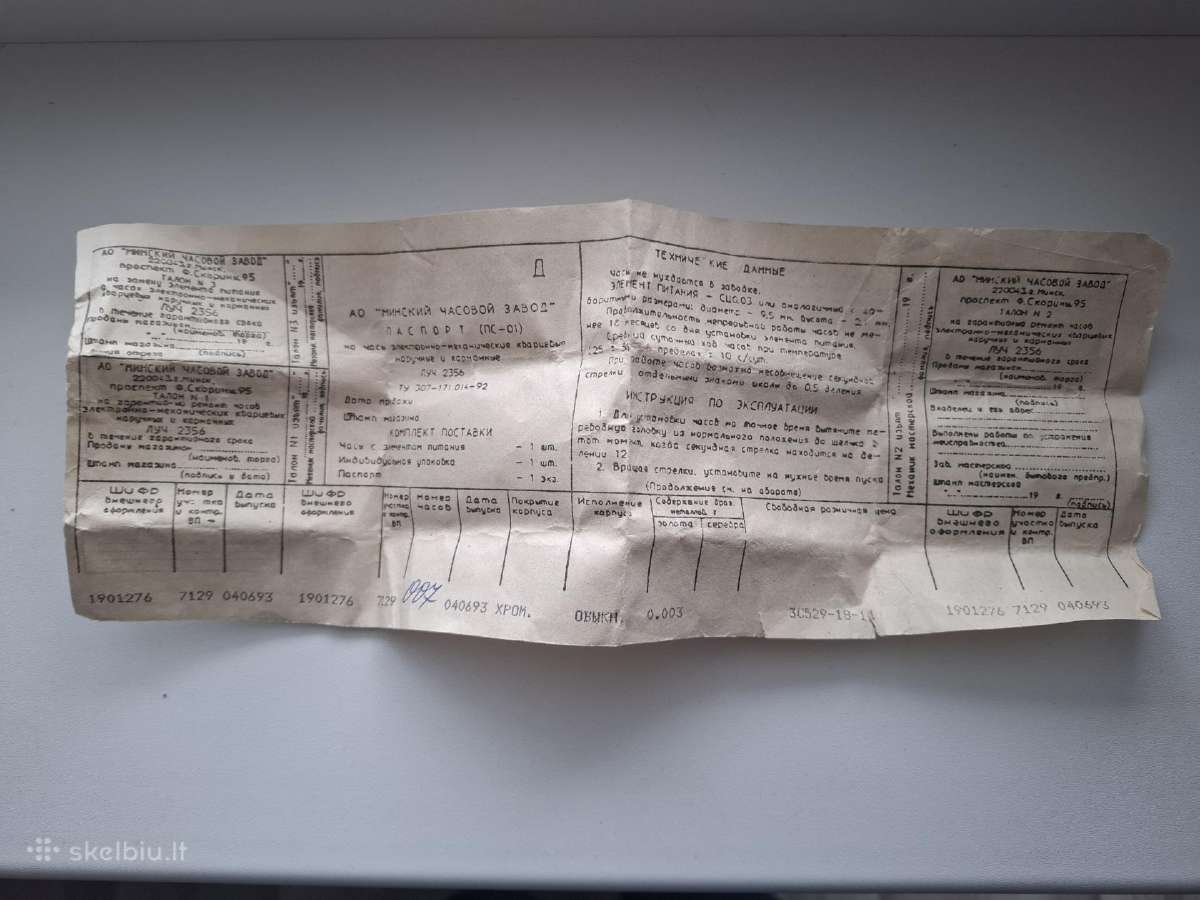 АО "МИНСКИЙ ЧАСОВОЙ ЗАВОД"
220043 г. Минск,
проспект Ф. Скорины 95
ТАЛОН N 3
на замену элемента питания
в часах электронно-механических
кварцевых наручных и карманных
ЛУЧ 2356
в течение гарантийного срока
продано магазином
(наименов. торга)
" " 19 г.
Штамп магазина
(подпись)
Линия отреза
Талон N3 изъят " " 19 г.
Механик мастерской
фамилия, подпись
АО "МИНСКИЙ ЧАСОВОЙ ЗАВОД"
220043 г. Минск,
проспект Ф. Скорины 95
ТАЛОН N 1
на гарантийный ремонт часов
электронно-механических кварцевых
наручных и карманных
ЛУЧ 2356
в течение гарантийного срока
Продани магазином
(наименов. торга)
Штамп магазина
(подпись и дата)
Талон N1 изъят "
Механик мастерской
Д
АО "МИНСКИЙ ЧАСОВОЙ ЗАВОД"
ПАСПОРТ (ПС-01)
на часы электронно-механические кварцевые
наручные и карманные
ЛУЧ 2356
ТУ 307-171.014-92
Дата продажи
Штамп магазина
КОМПЛЕКТ ПОСТАВКИ
Часы с элементом питания – 1 шт.
Индивидуальная упаковка – 1 шт.
Паспорт – 1 экз.
ТЕХНИЧЕСКИЕ ДАННЫЕ
Часы не нуждаются в заводке.
ЭЛЕМЕНТ ПИТАНИЯ - СЦ0.03 или аналогичный с га-
баритными размерами: диаметр - 9,5 мм, высота - 2,1 мм.
Продолжительность непрерывной работы часов не ме-
нее 18 месяцев со дня установки элемента питания.
Средний суточный ход часов при температуре
(25 ± 5)°С в пределах ± 1,0 с/сут.
При работе часов возможно несовпадение секундной
стрелки с отдельными знаками шкалы до 0,5 деления.
ИНСТРУКЦИЯ ПО ЭКСПЛУАТАЦИИ
1. Для установки часов на точное время вытяните пе-
реводную головку из нормального положения до щелчка в
тот момент, когда секундная стрелка находится на де-
лении 12.
2. Вращая стрелки, установите на нужное время пуска
(Продолжение см. на обороте)
Талон N2 изъят " " 19 г.
Механик мастерской
фамилия подпись
АО "МИНСКИЙ ЧАСОВОЙ ЗАВОД"
220043 г. Минск,
проспект Ф. Скорины 95
ТАЛОН N 2
на гарантийный ремонт часов
электронно-механических кварцевых
наручных и карманных
ЛУЧ 2356
в течение гарантийного срока
Продани магазином
(наименов. торга)
" " 19 г.
Штамп магазина
(подпись)
Владелец и его адрес
Выполнены работы по устранению
неисправностей
Зав. мастерской
(наимен. бытового предпр.)
Штамп мастерской
" " 19 г.
(подпись)
ШИФР внешнего оформления
Номер участка и контр. ВП
Дата выпуска
ШИФР внешнего оформления
Номер участка и контр. ВП
Номер часов
Дата выпуска
Покрытие корпуса
Исполнение корпуса
Содержание драг. металлов, г
золото
серебро
Свободная розничная цена
ШИФР внешнего оформления
Номер участка и контр. ВП
Дата выпуска
1901276 7129 040693 1901276 7129 007 040693 ХРОМ. ОБЫКН. 0.003 30529-18-1 1901276 7129 040693
skelbiu.lt